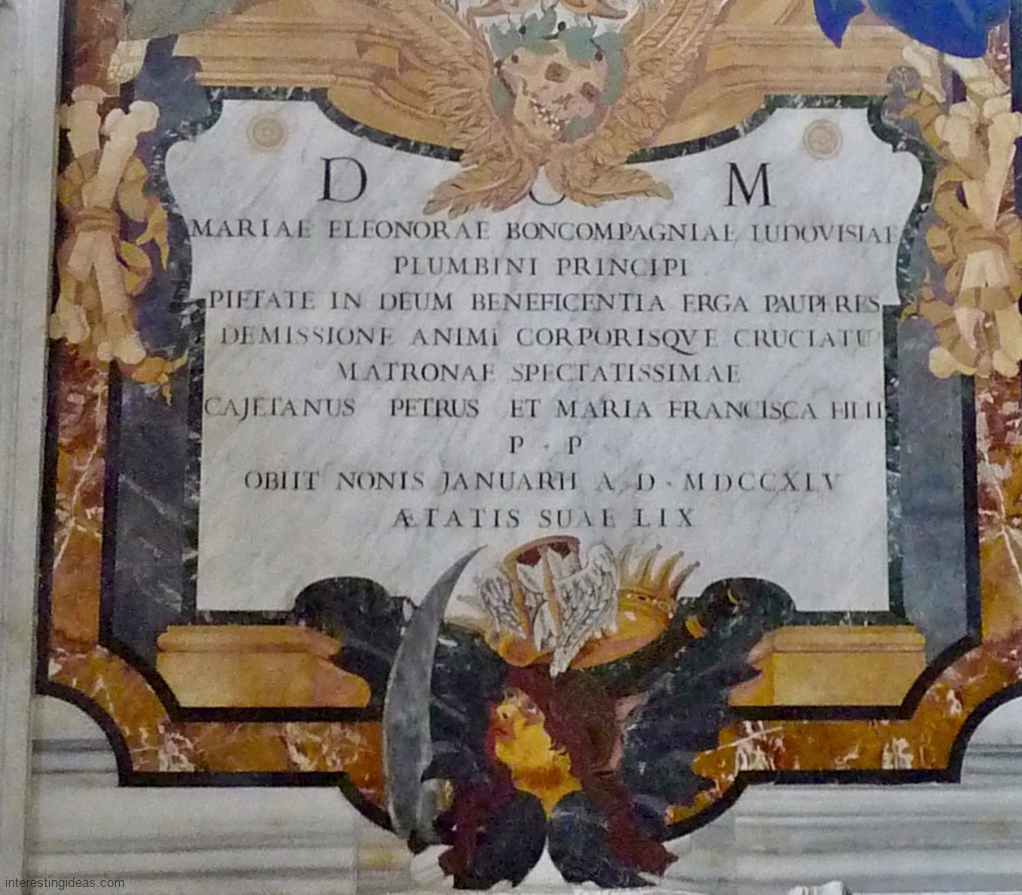 D O M
MARIAE ELEONORAE BONCOMPAGNIAE LUDOVISIAE
PLUMBINI PRINCIPI
PIETATE IN DEUM BENEFICENTIA ERGA PAUPERES
DEMISSIONE ANIMI CORPORISQVE CRUCIATU
MATRONAE SPECTATISSIMAE
CAJETANUS PETRUS ET MARIA FRANCISCA FILII
P · P
OBIIT NONIS JANUARII A · D · MDCCXLV
ÆTATIS SUAE LIX
interestingideas.com